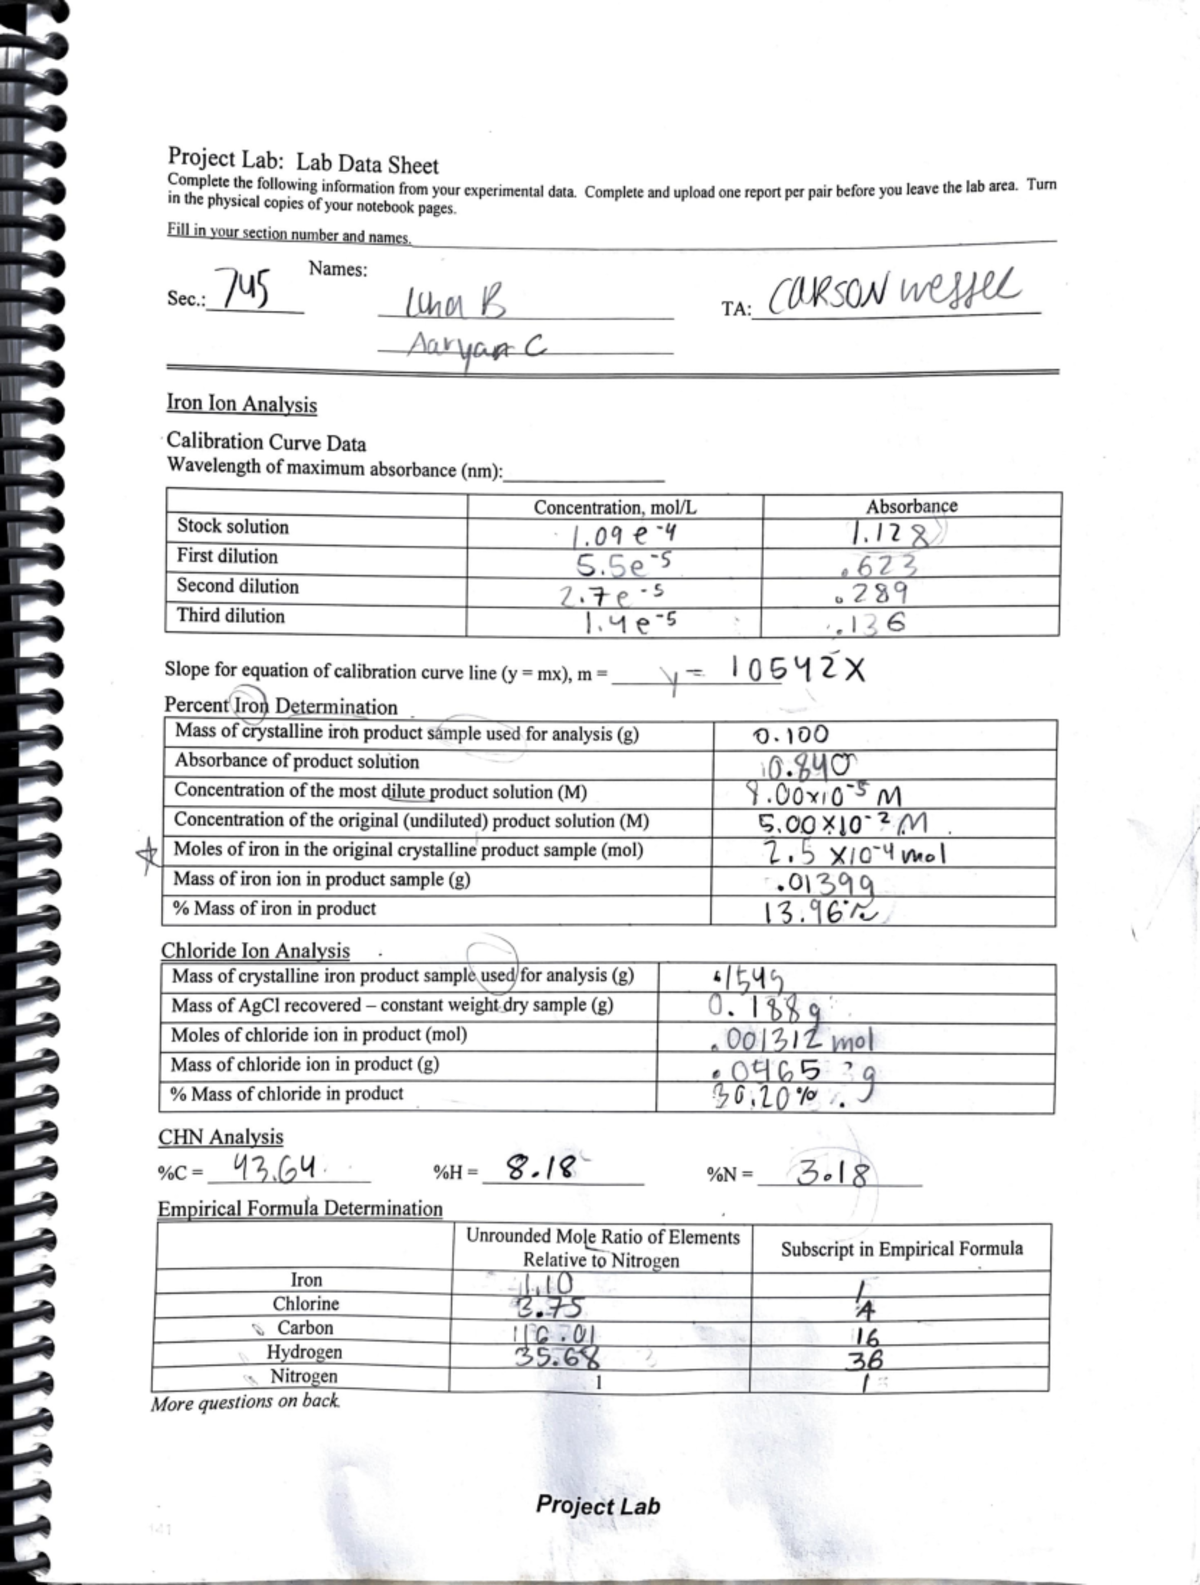 Project Lab: Lab Data Sheet
Complete the following information from your experimental data. Complete and upload one report per pair before you leave the lab area. Turn
in the physical copies of your notebook pages.
Fill in your section number and names.
Sec.: 745 Names: B TA: CARSON wessel
Aaryan C
Iron Ion Analysis
Calibration Curve Data
Wavelength of maximum absorbance (nm):
Concentration, mol/L Absorbance
Stock solution 1.09 e⁻⁴ 1.128
First dilution 5.5e⁻⁵ .623
Second dilution 2.7e⁻⁵ .289
Third dilution 1.4e⁻⁵ .136
Slope for equation of calibration curve line (y = mx), m = y = 10542X
Percent Iron Determination
Mass of crystalline iron product sample used for analysis (g) 0.100
Absorbance of product solution 0.840
Concentration of the most dilute product solution (M) 8.00x10⁻⁵ M
Concentration of the original (undiluted) product solution (M) 5.00X10⁻² M
Moles of iron in the original crystalline product sample (mol) 2.5 X10⁻⁴ mol
Mass of iron ion in product sample (g) .0139g
% Mass of iron in product 13.96%
Chloride Ion Analysis
Mass of crystalline iron product sample used for analysis (g) .154g
Mass of AgCl recovered – constant weight dry sample (g) 0.188g
Moles of chloride ion in product (mol) .001312 mol
Mass of chloride ion in product (g) .0465 g
% Mass of chloride in product 30.20%
CHN Analysis
%C = 43.64 %H = 8.18 %N = 3.18
Empirical Formula Determination
Unrounded Mole Ratio of Elements
Relative to Nitrogen Subscript in Empirical Formula
Iron 1.10 1
Chlorine 3.75 4
Carbon 16.01 16
Hydrogen 35.68 36
Nitrogen 1 1
More questions on back.
Project Lab